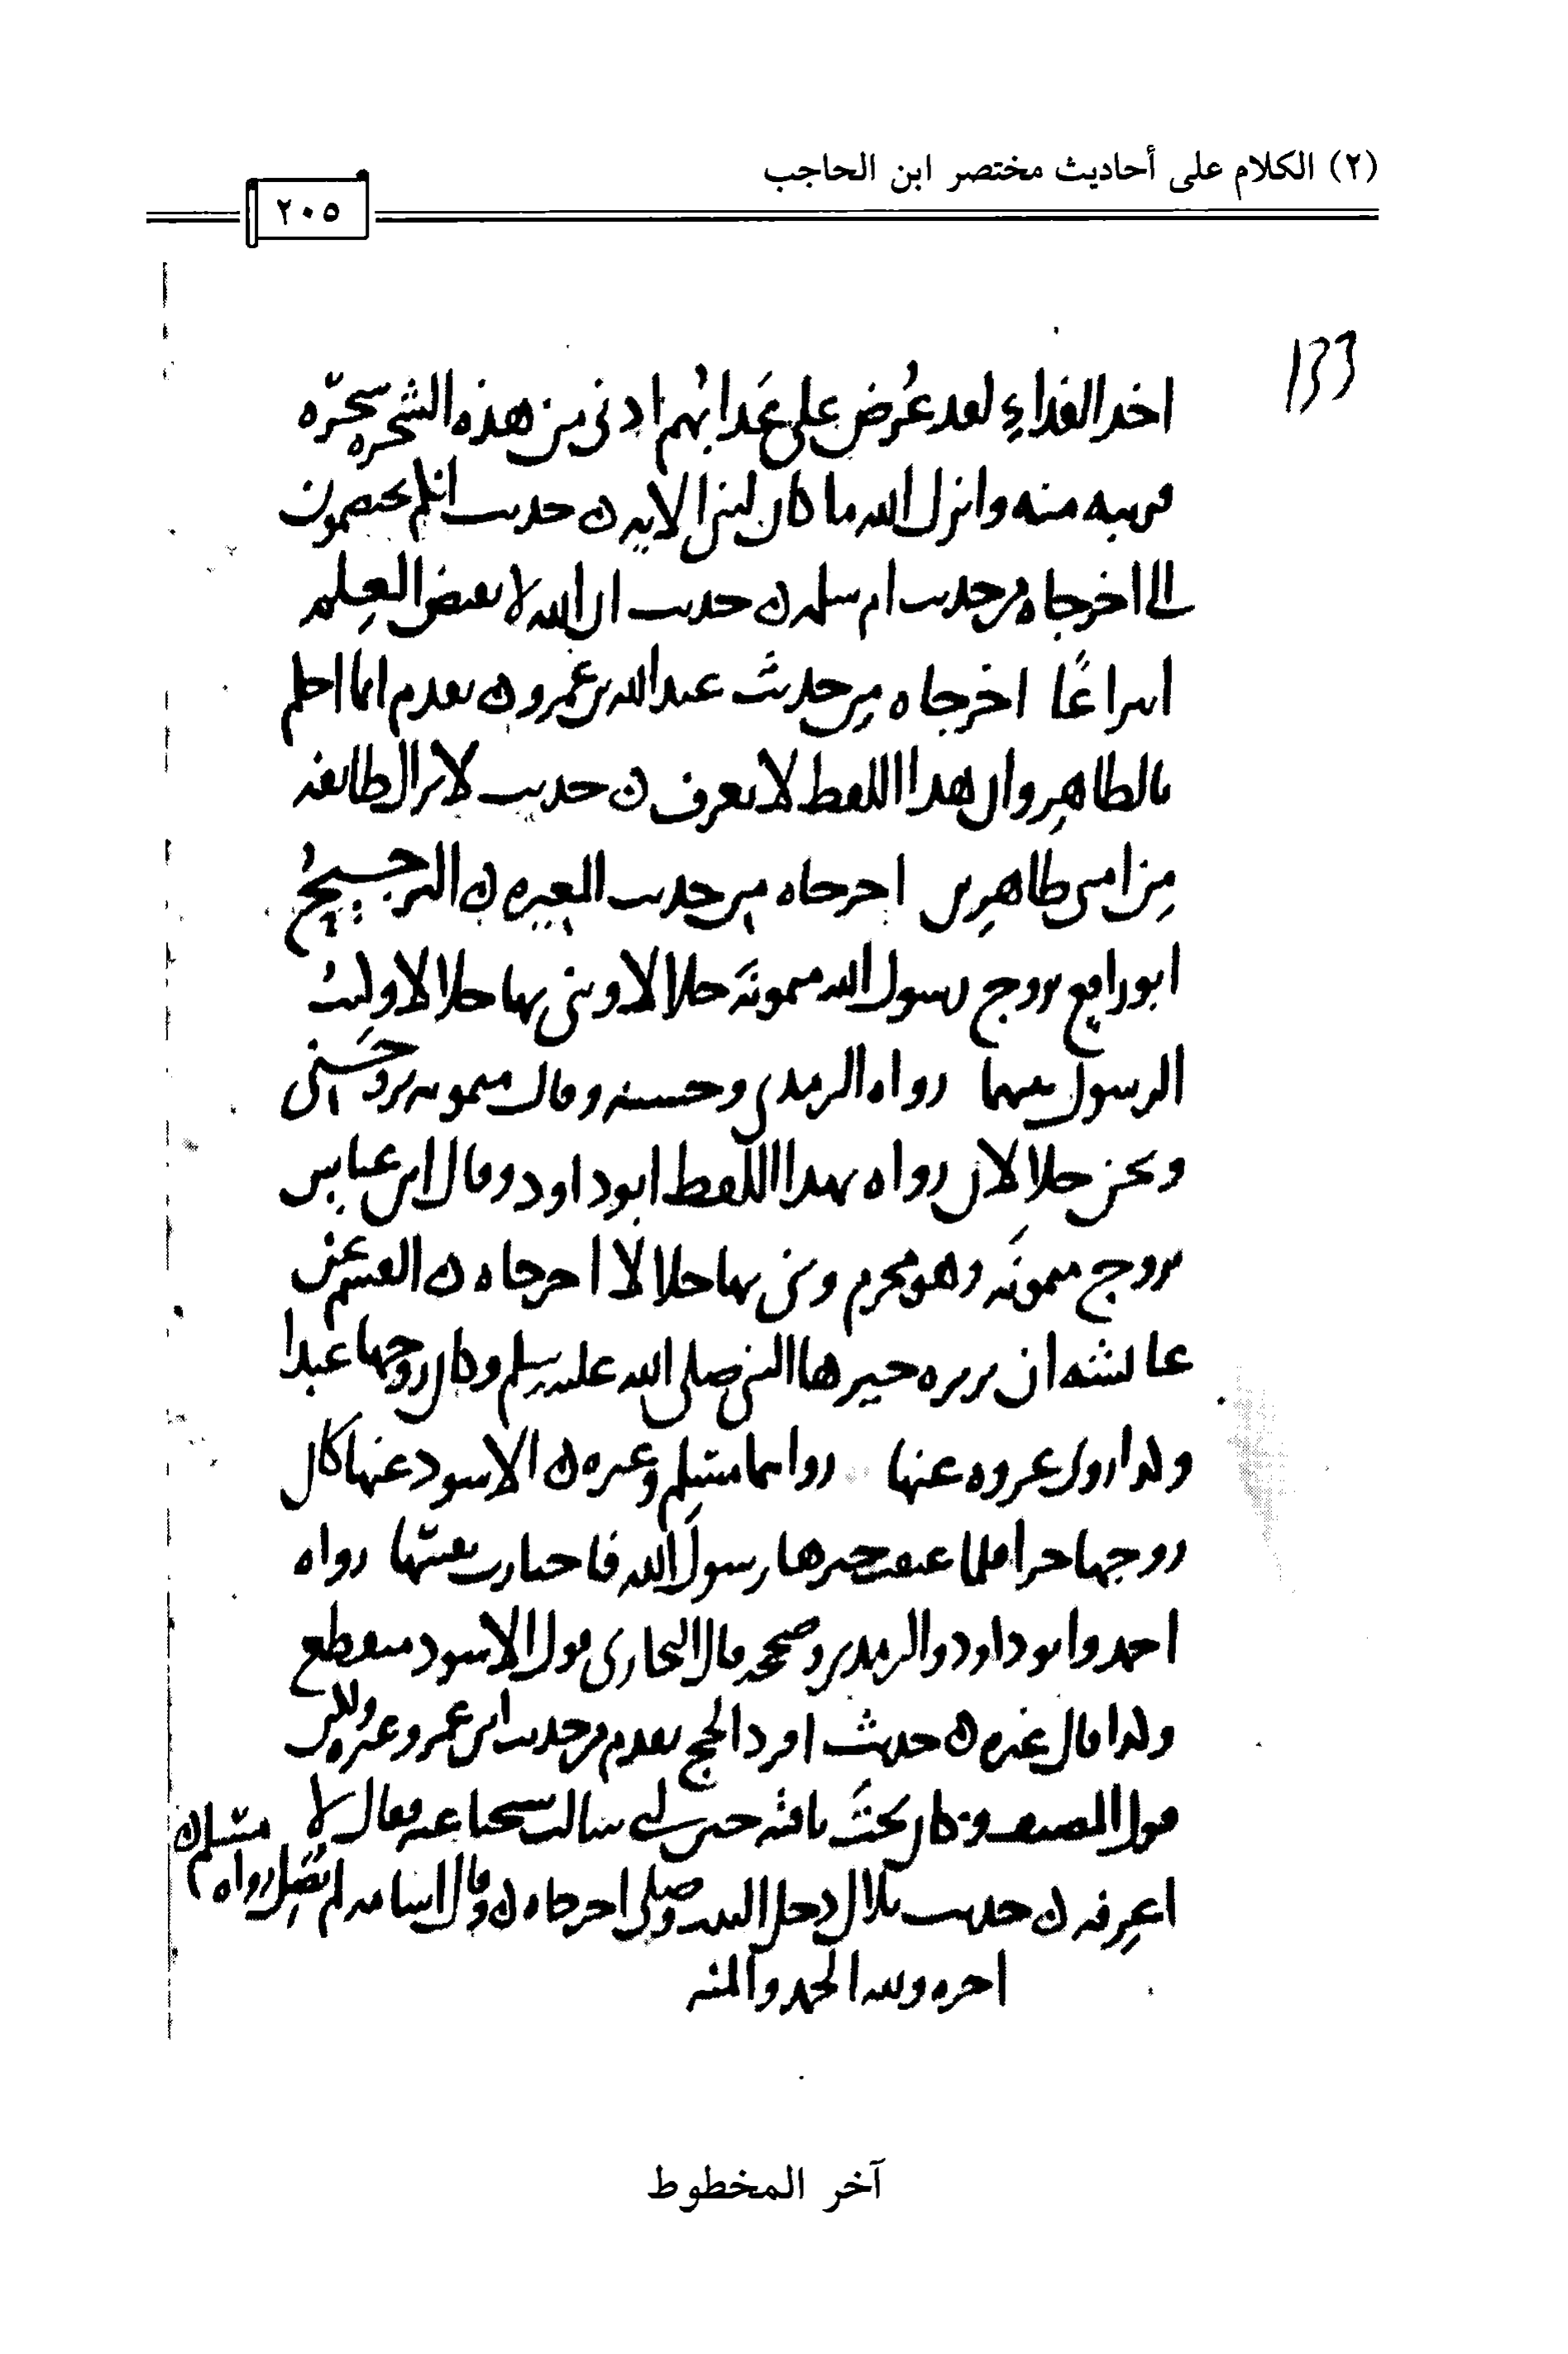 (٢) الكلام على أحاديث مختصر ابن الحاجب
٢٠٥
133
اخذ الفداء لقد عرض على عذابهم ادنى من هذه الشجره شجرة
قريبه منه وانزل الله ما كان لنبي الايه ن حديث انكم تختصمون
الي اخرجاه من حديث ام سلمه ن حديث ان الله لا يقبض العلم
انتزاعًا اخرجاه من حديث عبد الله بن عمرو ن تقدم انما احكم
بالظاهر وان هذا اللفظ لا يعرف ن حديث لا تزال طايفه
من امتي ظاهرين اخرجاه من حديث المغيره ن الترجيح
ابو رافع تزوج رسول الله ميمونة حلالا وبنى بها حلالا وكنت
الرسول بينهما رواه الترمذي وحسنه وقالت ميمونه تزوجني
ونحن حلالان رواه بهذا اللفظ ابو داود وقال ابن عباس
تزوج ميمونة وهو محرم وبنى بها حلالا اخرجاه ن القسم عن
عائشه ان بريره خيرها النبي صلى الله عليه وسلم وكان زوجها عبدا
وكذا روى عروه عنها رواهما مسلم وغيره ن الاسود عنها كان
زوجها حرا فلما عتقت خيرها رسول الله فاختارت نفسها رواه
احمد وابو داود والترمذي وصححه قال البخاري قول الاسود منقطع
وكذا قال غيره ن حديث افرد الحج تقدم من حديث ابن عمر وغيره ولكن
قول المصنف وكان تحت ناقته حين لبى سالت شيخنا عنه فقال لا
اعرفه ن حديث بلال دخل البيت وصلى اخرجاه ن وقال اسامه لم يصل رواه مسلم ن
اخره ولله الحمد والمنه
آخر المخطوط